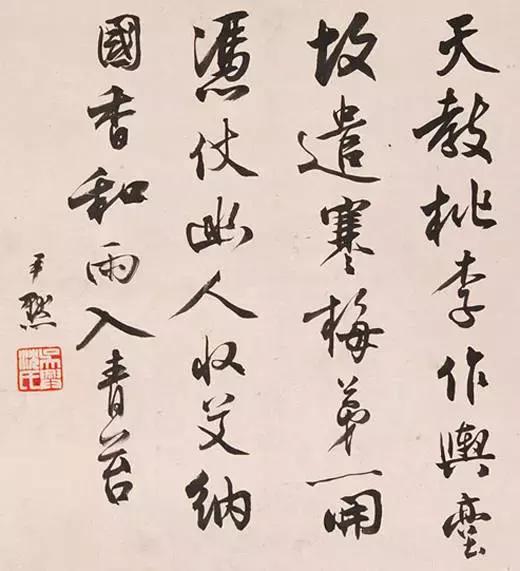 天教桃李作輿臺
故遣寒梅第一開
憑仗幽人收艾納
國香和雨入青苔
尹默
吳興沈氏